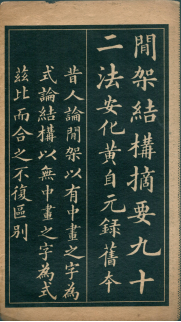 閒架結構摘要九十
二法安化黃自元錄舊本
昔人論閒架以有中畫之字為
式論結構以無中畫之字為式
茲比而合之不復區別